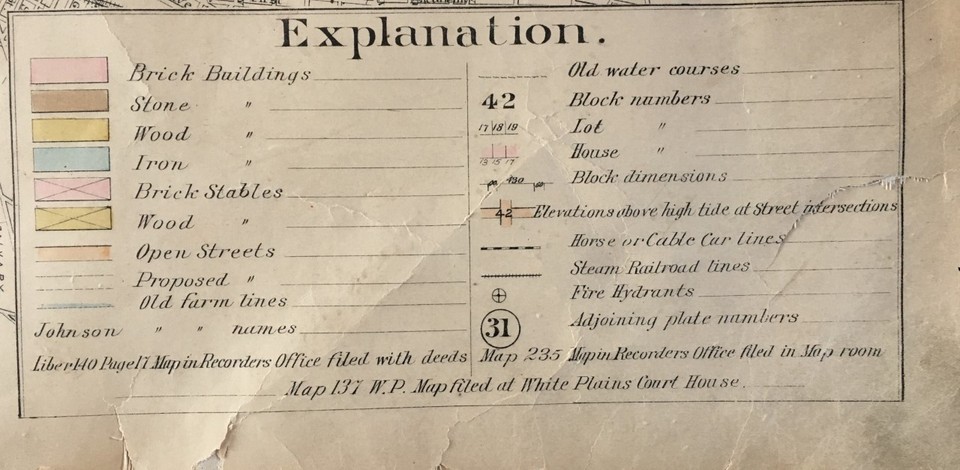 Explanation.
Brick Buildings
Stone "
Wood "
Iron "
Brick Stables
Wood "
Open Streets
Proposed "
Old farm lines
Johnson " " names
Old water courses
42 Block numbers
17 18 19 Lot "
13 15 17 House "
430 Block dimensions
42 Elevations above high tide at Street intersections
Horse or Cable Car lines
Steam Railroad lines
Fire Hydrants
31 Adjoining plate numbers
Liber 140 Page 17 Map in Recorders Office filed with deeds
Map 235 Map in Recorders Office filed in Map room
Map 137 W.P. Map filed at White Plains Court House.